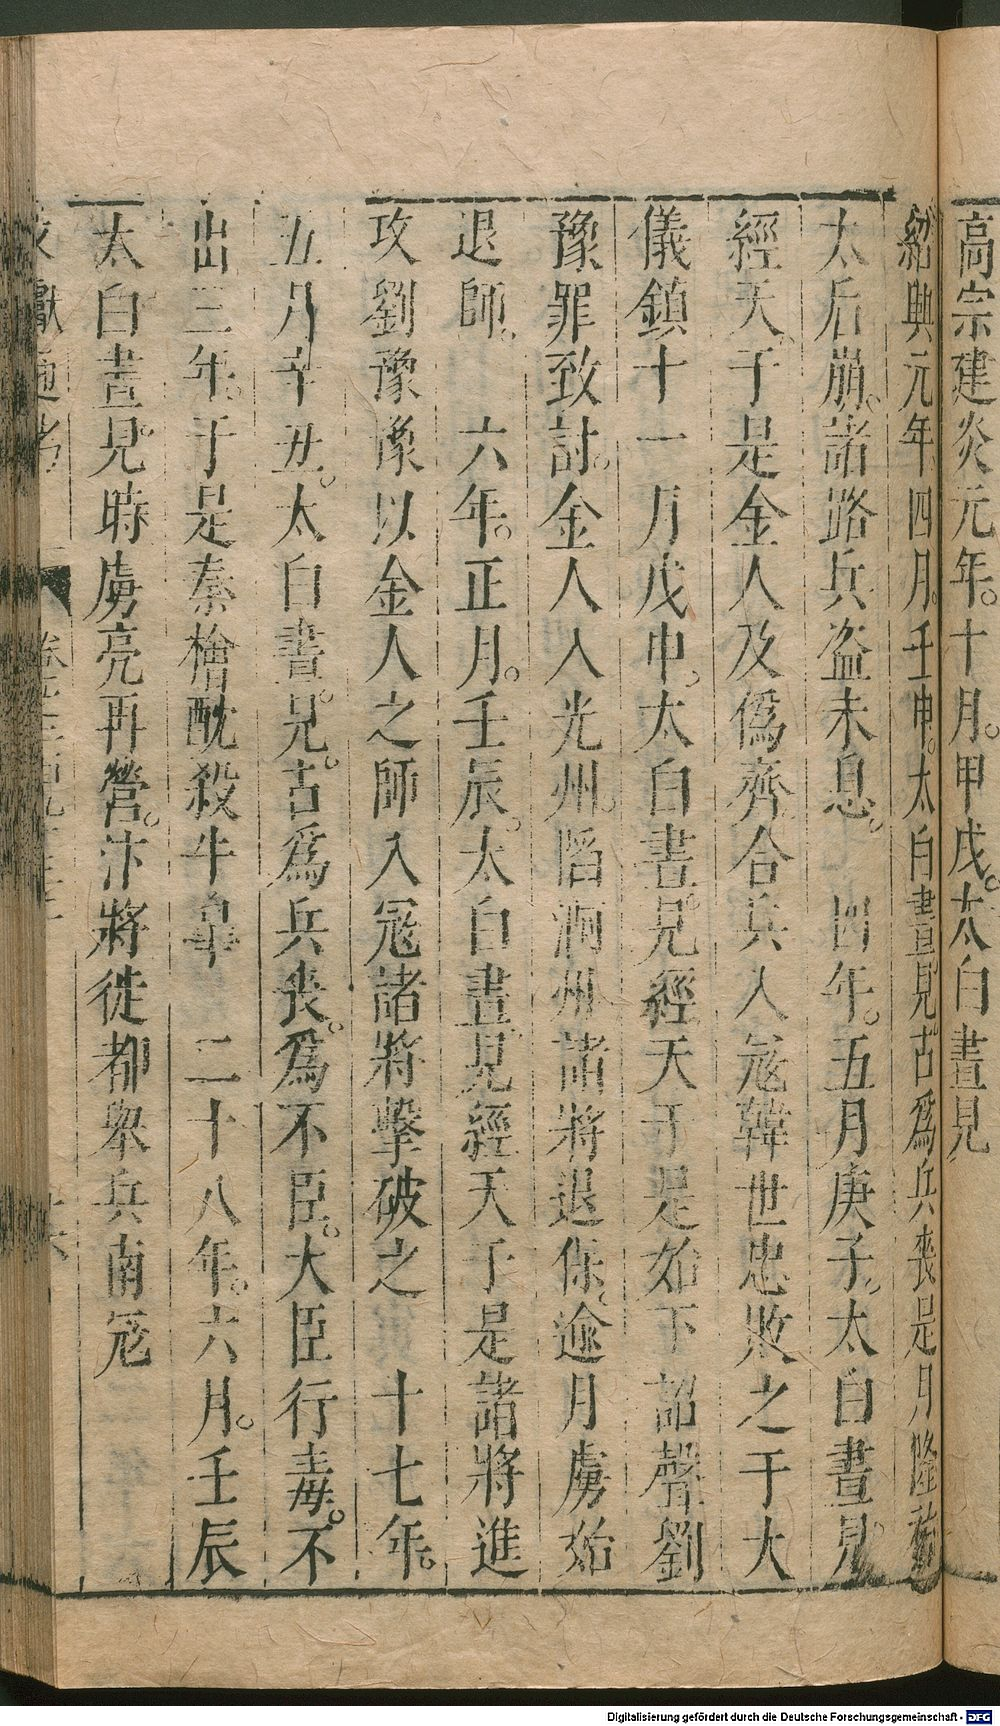 高宗建炎元年。十月。甲戌。太白晝見
紹興元年四月。壬申。太白晝見。古爲兵喪是月隆祐
太后崩。諸路兵盗未息。 四年。五月庚子。太白晝見
經天。于是金人及僞齊合兵入冦韓世忠敗之于大
儀鎮十一月戊申。太白晝。見經天于是始下詔聲劉
豫罪致討。金人入光州。陷泗州諸將退保。逾月虜始
退師。 六年。正月。壬辰。太白晝見經天于是諸將進
攻劉豫豫以金人之師入冦諸將擊破之 十七年。
五月辛丑。太白晝。見。古爲兵喪。爲不臣。大臣行毒。不
出三年。于是秦檜酖殺牛皐 二十八年。六月。壬辰
太白晝見。時虜亮再營。汴將徙都舉兵南冦
文獻通考
Digitalisierung gefördert durch die Deutsche Forschungsgemeinschaft - DFG